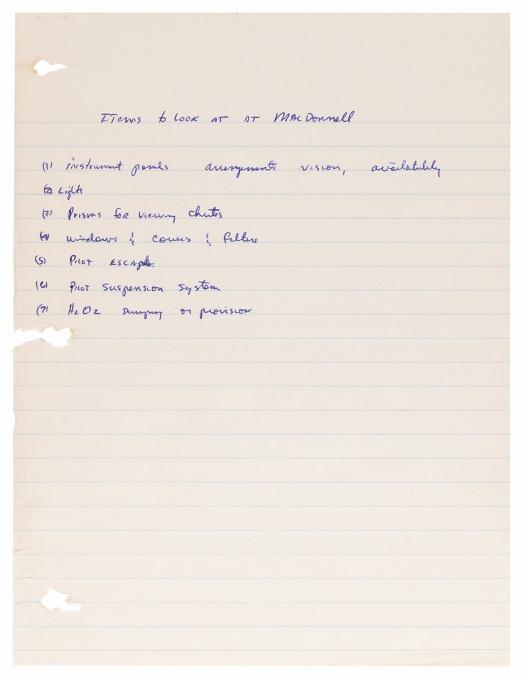 Items to Look AT AT MacDonnell
(1) instrument panels arrangement vision, availability
(2) Lights
(3) Prisms for viewing chutes
(4) windows & covers & filters
(5) Pilot ESCAPE.
(6) Pilot Suspension System
(7) H2O2 Dumping or provision